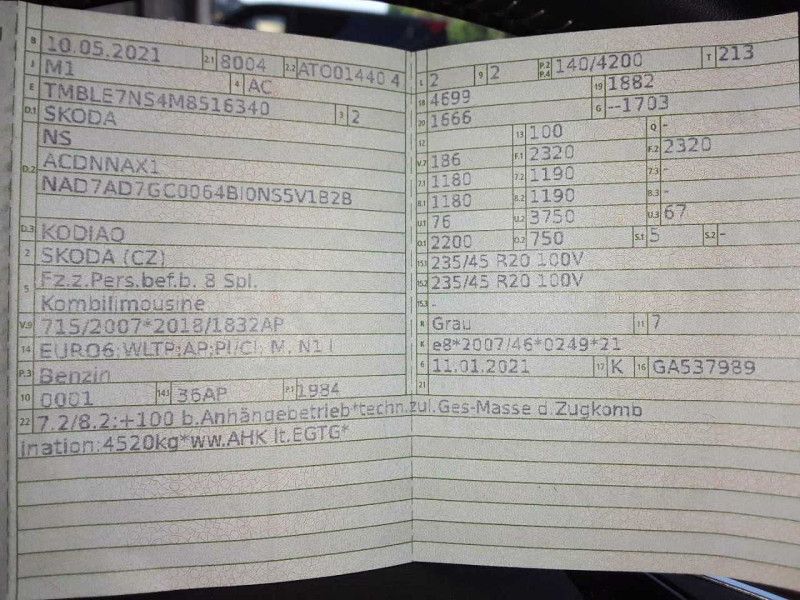 B 10.05.2021 2.1 8004 2.2 ATO01440 4
J M1 4 AC
E TMBLE7NS4M8516340 3 2
D.1 SKODA
NS
D.2 ACDNNAX1
NAD7AD7GC0064BI0NS5V1B2B
D.3 KODIAQ
2 SKODA (CZ)
5 Fz.z.Pers.bef.b. 8 Spl.
Kombilimousine
V.9 715/2007*2018/1832AP
14 EURO6;WLTP;AP;PI/CI; M, N1 I
P.3 Benzin
10 0001 14.1 36AP P.1 1984
22 7.2/8.2:+100 b.Anhängebetrieb*techn.zul.Ges-Masse d.Zugkomb
ination:4520kg*ww.AHK lt.EGTG*
L 2 9 2 P.2 P.4 140/4200 T 213
18 4699 19 1882
20 1666 G --1703
12 13 100 Q -
V.7 186 F.1 2320 F.2 2320
7.1 1180 7.2 1190 7.3 -
8.1 1180 8.2 1190 8.3 -
U.1 76 U.2 3750 U.3 67
O.1 2200 O.2 750 S.1 5 S.2 -
15.1 235/45 R20 100V
15.2 235/45 R20 100V
15.3 -
R Grau 11 7
K e8*2007/46*0249*21
6 11.01.2021 17 K 16 GA537989
21